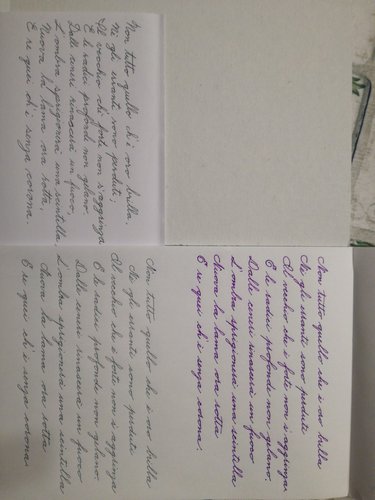 Non tutto quello ch'è oro brilla
Né gli erranti sono perduti
Il vecchio ch'è forte non s'aggrinza
E le radici profonde non gelano.
Dalle ceneri rinascerà un fuoco
L'ombra sprigionerà una scintilla
Nuova la lama ora rotta
E re quei ch'è senza corona.
Non tutto quello ch'è oro brilla,
Né gli erranti sono perduti;
Il vecchio ch'è forte non s'aggrinza
E le radici profonde non gelano.
Dalle ceneri rinascerà un fuoco,
L'ombra sprigionerà una scintilla;
Nuova la lama ora rotta,
E re quei ch'è senza corona.
Non tutto quello ch'è oro brilla
Né gli erranti sono perduti
Il vecchio ch'è forte non s'aggrinza
E le radici profonde non gelano.
Dalle ceneri rinascerà un fuoco
L'ombra sprigionerà una scintilla
Nuova la lama ora rotta
E re quei ch'è senza corona